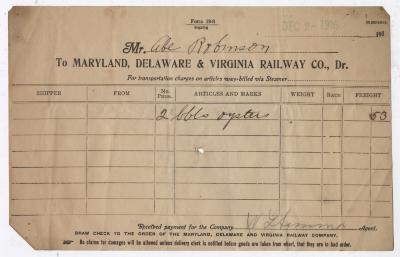 Form 19-8
DEC 2- 1906
190
Mr. Abe Robinson
To MARYLAND, DELAWARE & VIRGINIA RAILWAY CO., Dr.
For transportation charges on articles way-billed via Steamer
SHIPPER FROM No. Pkgs. ARTICLES AND MARKS WEIGHT Rate FREIGHT
2 bbls oysters 53
Received payment for the Company Agent.
DRAW CHECK TO THE ORDER OF THE MARYLAND, DELAWARE AND VIRGINIA RAILWAY COMPANY.
No claims for damages will be allowed unless delivery clerk is notified before goods are taken from wharf, that they are in bad order.